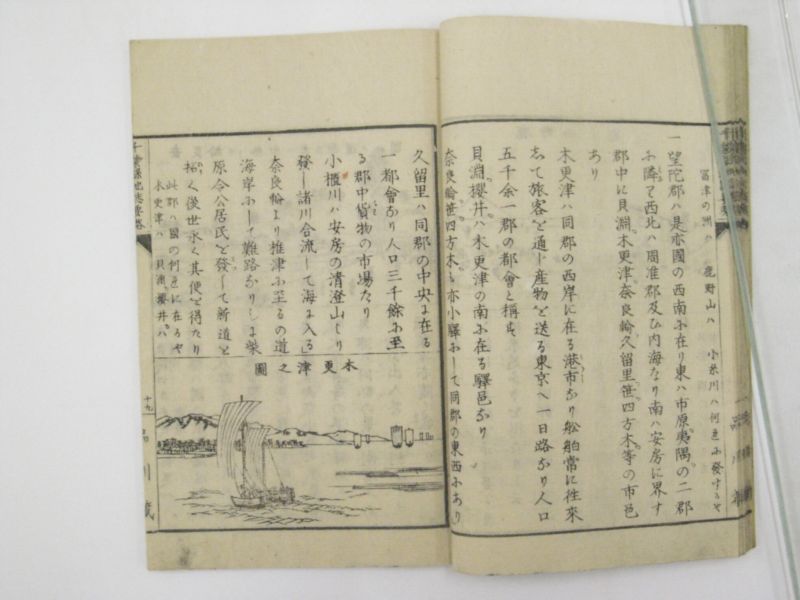 富津の洲ハ 鹿野山ハ 小糸川ハ何邑ふ發するや
一望陀郡ハ是亦國の西南ふ在り東ハ市原夷隅の二郡
ふ隣て西北ハ周准郡及び内海なり南ハ安房に界す
郡中に貝淵木更津奈良輪久留里笹四方木等の市邑
あり
木更津ハ同郡の西岸に在る港市なり舩舶常に往來
して旅客を通し産物を送る東京へ一日路なり人口
五千余一郡の都會と稱す
貝淵櫻井ハ木更津の南ふ在る驛邑なり
奈良輪笹四方木も亦小驛ふして同郡の東西ふあり
久留里ハ同郡の中央よ在る
一都會なり人口三千餘ふ至
る郡中貨物の市場たり
小櫃川ハ安房の清澄山より
發し諸川合流して海よ入る
奈良輪より椎津ふ至るの道
海岸ふして難路なりしよ柴
原令公居民を發して新道を
拓く後世永く其便を得たり
此郡ハ國の何邑に在るや
木更津ハ 貝淵櫻井ハ
木更津之圖
千葉縣地誌要略
十九